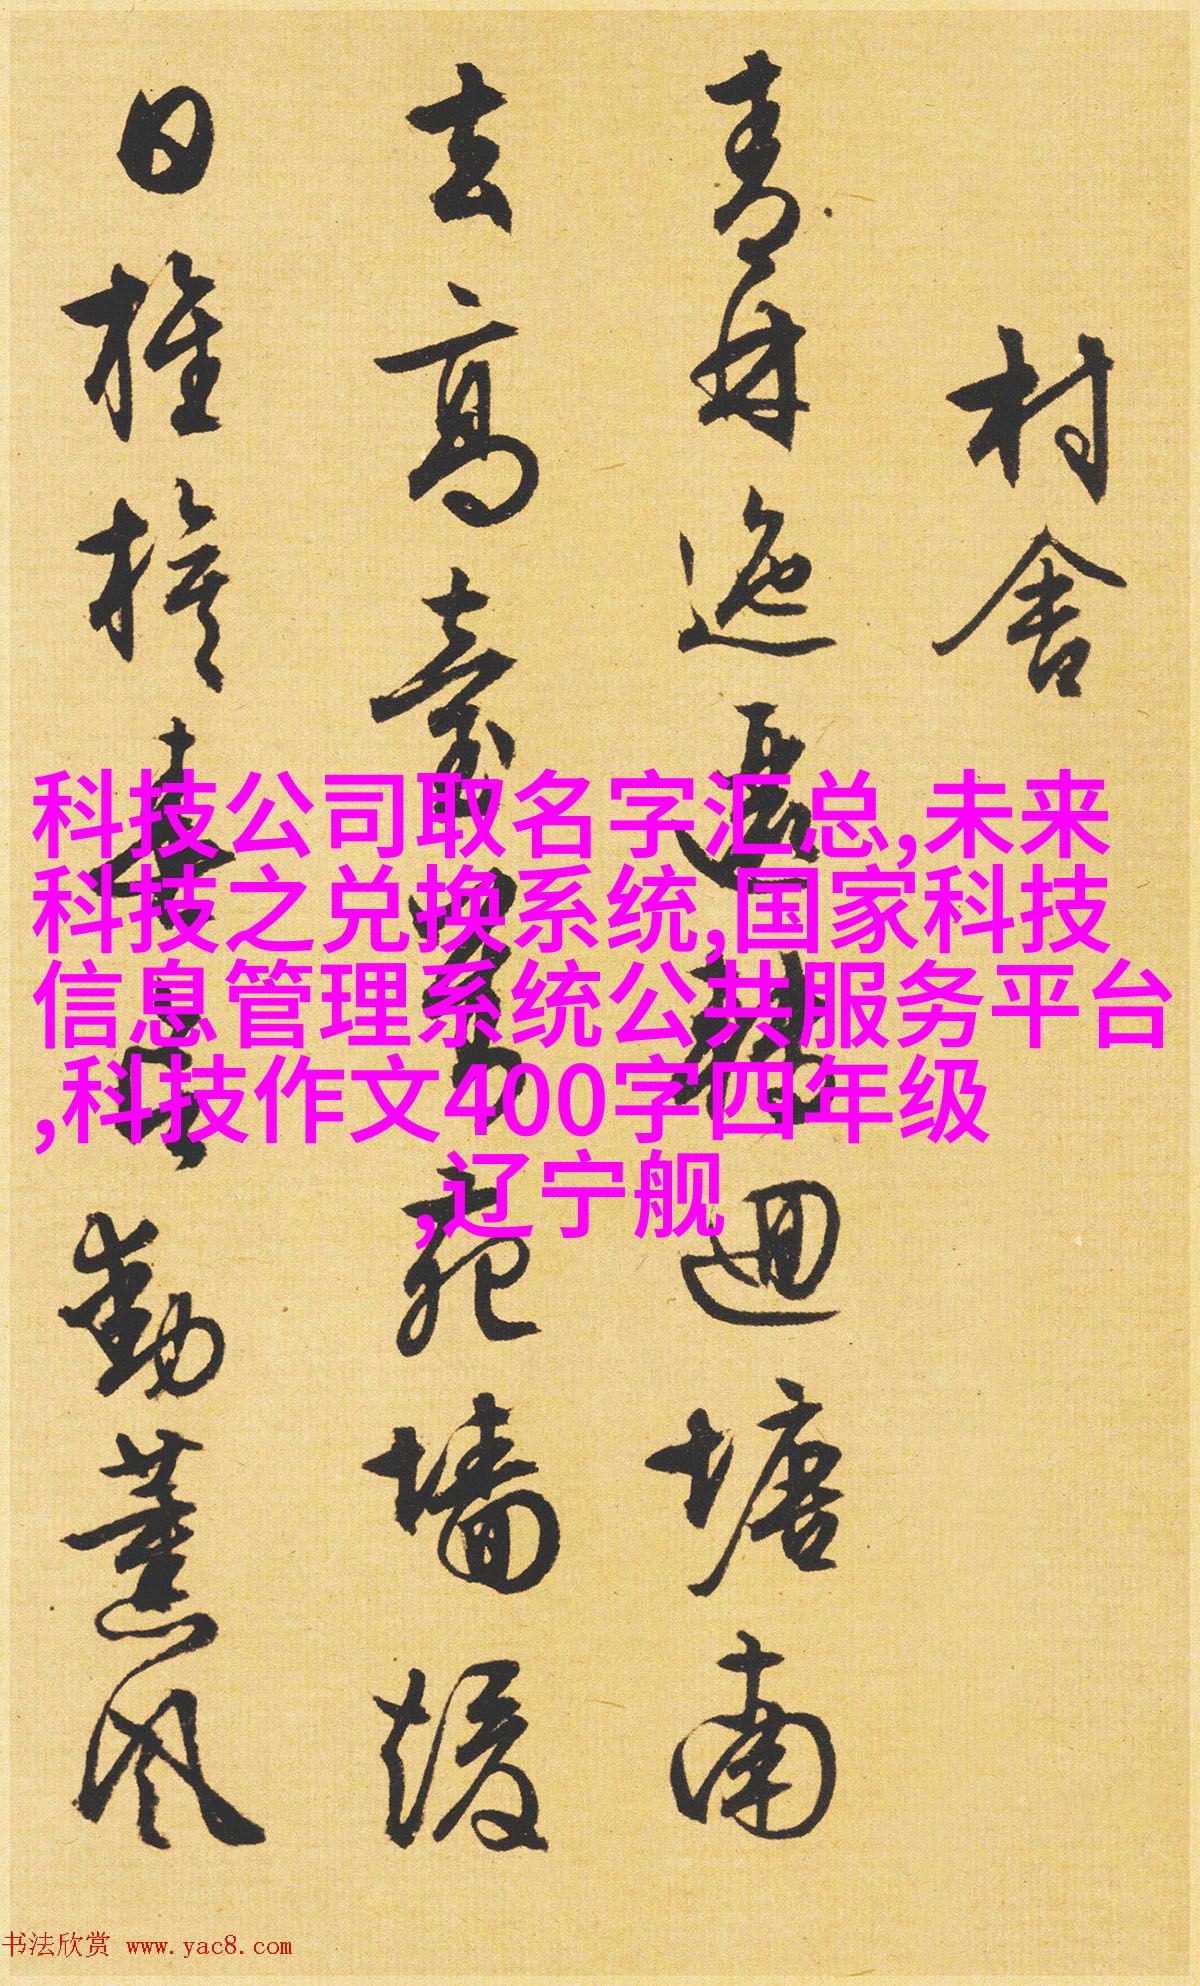 村舍
青林迤邐轉迴塘南
去高臺對苑墻煖
日旌旗春動薰風
科技公司取名字汇总,未来
科技之兑换系统,国家科技
信息管理系统公共服务平台
,科技作文400字四年级
,辽宁舰
书法欣赏 www.yac8.com